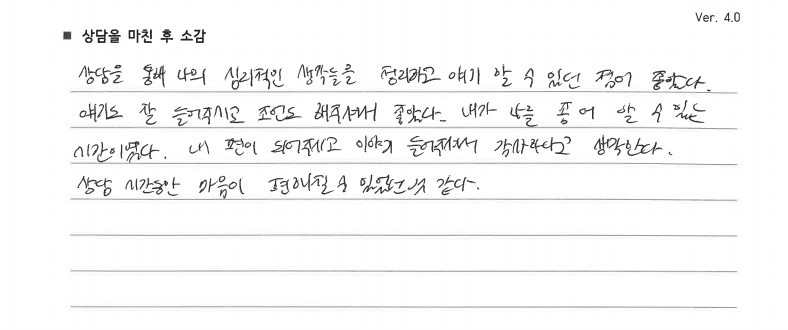 Ver. 4.0
■ 상담을 마친 후 소감
상담을 통해 나의 심리적인 생각들을 정리하고 얘기 할 수 있던 점이 좋았다.
얘기도 잘 들어주시고 조언도 해주셔서 좋았다. 내가 나를 품어 할 수 있는
시간이였다. 내 편이 되어주시고 이야기 들어주셔서 감사하다고 생각한다.
상담 시간동안 마음이 편해질 수 있었던 것 같다.